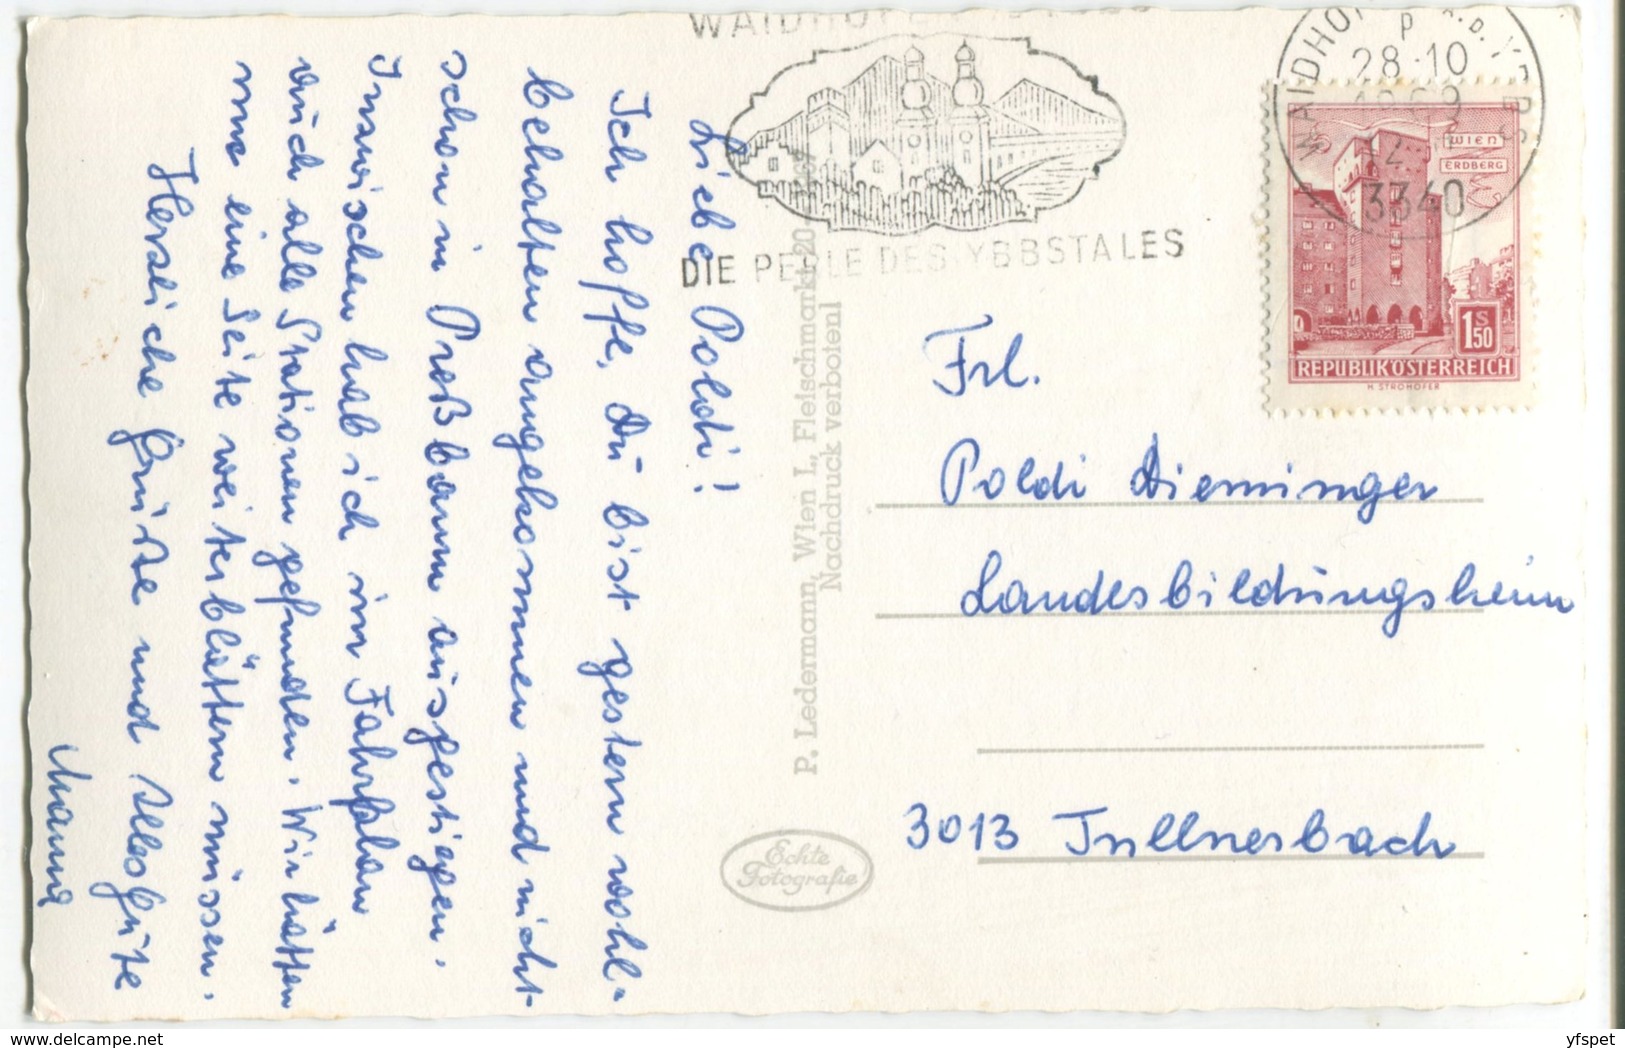 Liebe Poldi!
Ich hoffe, Du bist gestern wohl-
behalten angekommen und nicht
schon in Preßbaum ausgestiegen.
Inzwischen hab ich im Fahrplan
auch alle Stationen gefunden. Wir hätten
nur eine Seite weiterblättern müssen.
Herzliche Grüße und alles Gute
Mama
P. Ledermann, Wien I., Fleischmarkt 20
Nachdruck verboten!
Echte
Fotografie
DIE PERLE DES YBBSTALES
28.10
3340
WIEN
ERDBERG
1 S 50
REPUBLIK ÖSTERREICH
H. STROHOFER
Frl.
Poldi Dieminger
Landesbildungsheim
3013 Tullnerbach
yfspet